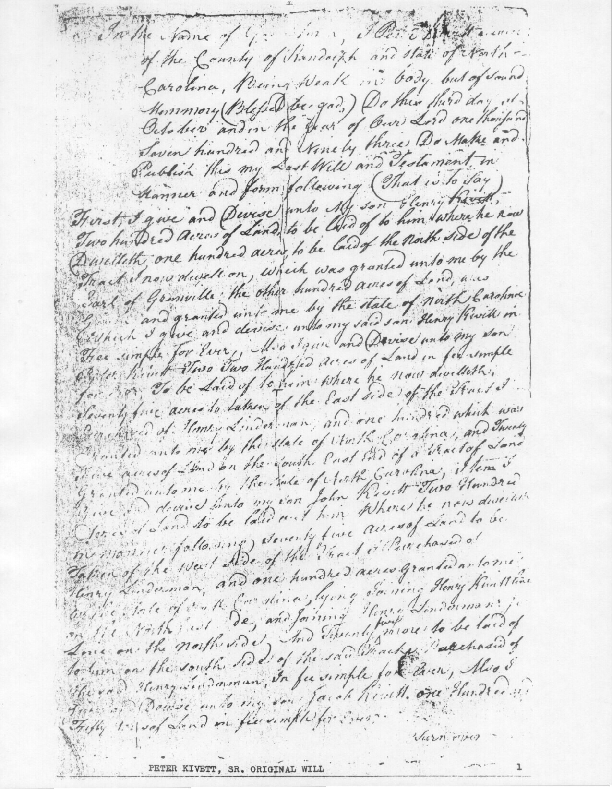 In the Name of God I Peter
of the County of Randolph and state of North
Carolina, Being Weak in body but of Sound
Memmory (Blessed be god,) Do this third day of
October and in the Year of Our Lord one thousand
Seven hundred and Ninety three Do Make and
Publish this my Last Will and Testament in
Manner and form following (That is to Say)
First I give and (Devise) unto My son Henry Kivett,
Two hundred Acres of Land, to be laid of to him where he now
Dwelleth one hundred acres to be laid of the North side of the
Tract I now dwell on, which was granted unto me by the
Earl of Granville the other hundred acres of Land, was
and granted unto me by the state of north Carolina
which I give and devise unto my said son Henry Kivett in
Fee simple for Ever, Also I give and Devise unto my son
Peter Kivett Two Two Hundred acres of Land in fee simple
for Ever To be Laid of to him where he now dwelleth,
Seventy five acres to taken of the East side of the Tract I
Purchased of Henry Linderman, and one hundred which was
Granted unto me by the state of North Carolina, and Twenty
Five acres of Land on the South East End of a Tract of Land
Granted unto me by the State of North Carolina, Item I
Give and devise unto my son John Kivett Two Hundred
Acres of Land to be laid out him Where he now
following, Seventy five acres of Land to be
Taken of the West side of the Tract I Purchased of
Henry Linderman, and one hundred acres Granted unto me
by the state of North Carolina, lying Joining Henry Kivett line
on the North and Joining Henry Linderman
Line on the North side, And Twenty five more to be laid of
to him on the south side of the said Tract Purchased of
the said Henry Linderman, In fee simple for Ever, Also I
Give and Devise unto my son Jacob Kivett one Hundred
Fifty of Land in fee simple for Ever
Turn over
PETER KIVETT, SR. ORIGINAL WILL 1